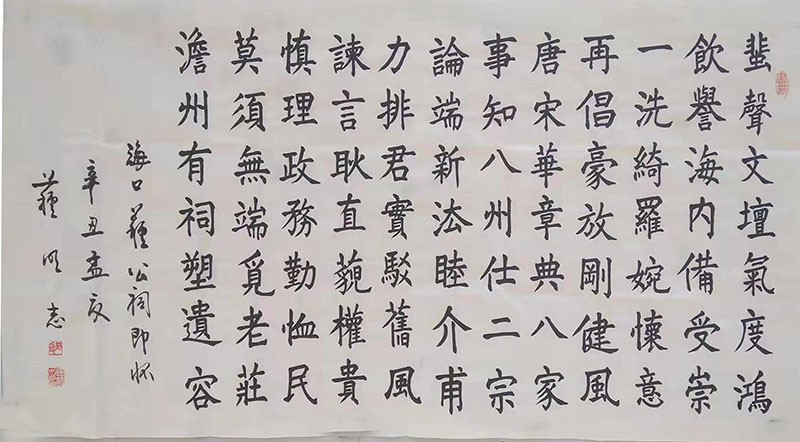 蜚聲文壇氣度鴻
飲譽海内備受崇
一洗綺羅婉懷意
再倡豪放剛健風
唐宋華章典八家
事知八州仕二宗
論端新法睦介甫
力排君實駁舊風
諫言耿直藐權貴
慎理政務勤恤民
莫須無端覓老莊
澹州有祠塑遺容
海口蘇公祠即懷
辛丑孟夏
蘇明志